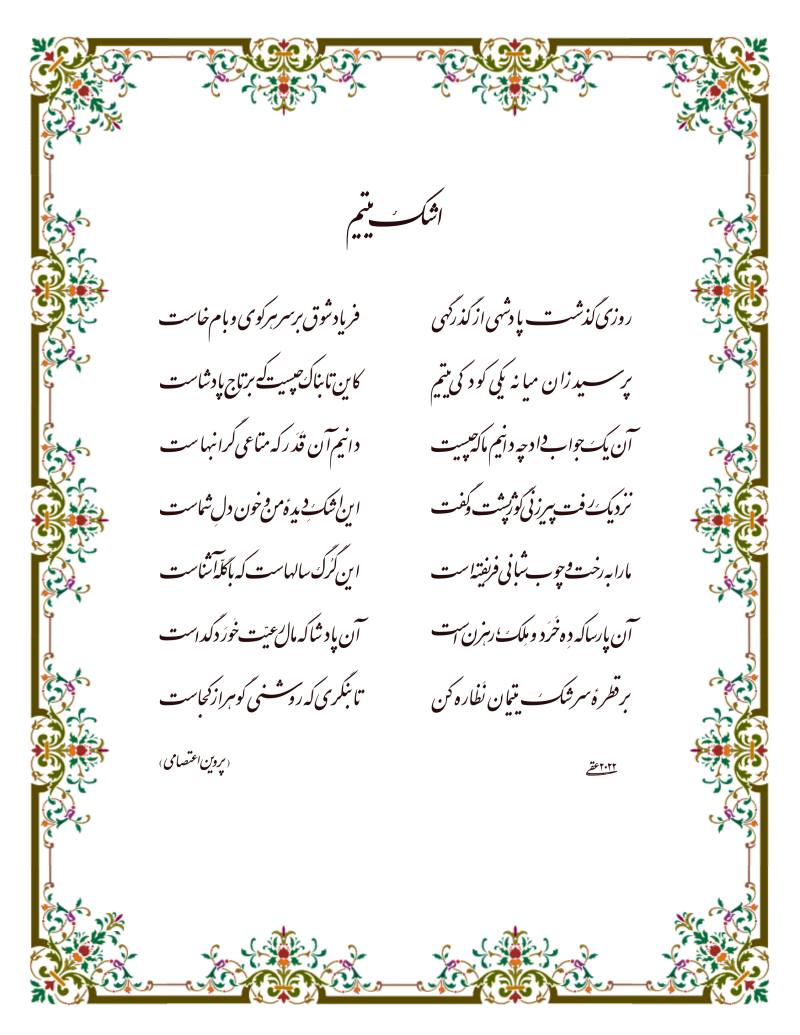 اشک یتیم
روزی گذشت پادشهی از گذرگهی فریاد شوق بر سر هر کوی و بام خاست
پرسید زان میانه یکی کودکی یتیم کاین تابناک چیست که بر تاج پادشاست
آن یک جواب داد چه دانیم ما که چیست دانیم آن قَدَر که متاعی گرانبهاست
نزدیک رفت پیرزنی کوژپشت و گفت این اشکِ دیدهٔ من و خون دلِ شماست
ما را به رخت و چوب شبانی فریفته است این گُرگ سالهاست که با گلّه آشناست
آن پارسا که دِه خَرَد و مِلک، رهزن است آن پادشا که مال رعیّت خورَد گداست
بر قطرهٔ سرشک یتیمان نَظاره کن تا بنگری که روشنی گوهر از کجاست
(پروین اعتصامی)